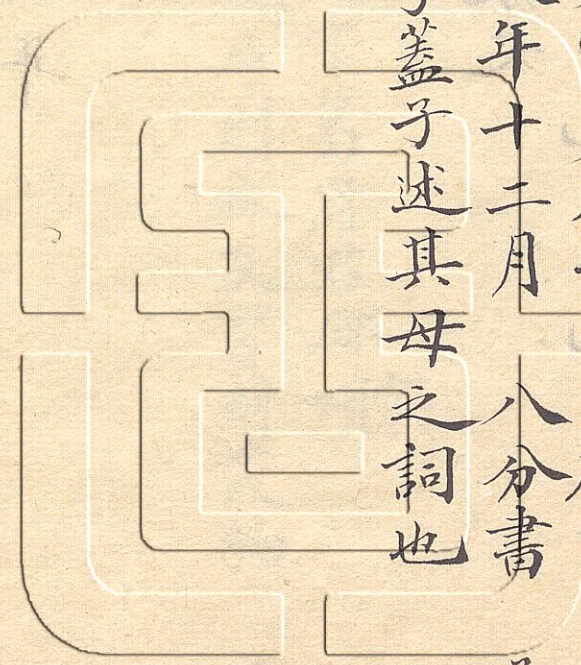 年十二月　八分書
蓋子述其母之詞也